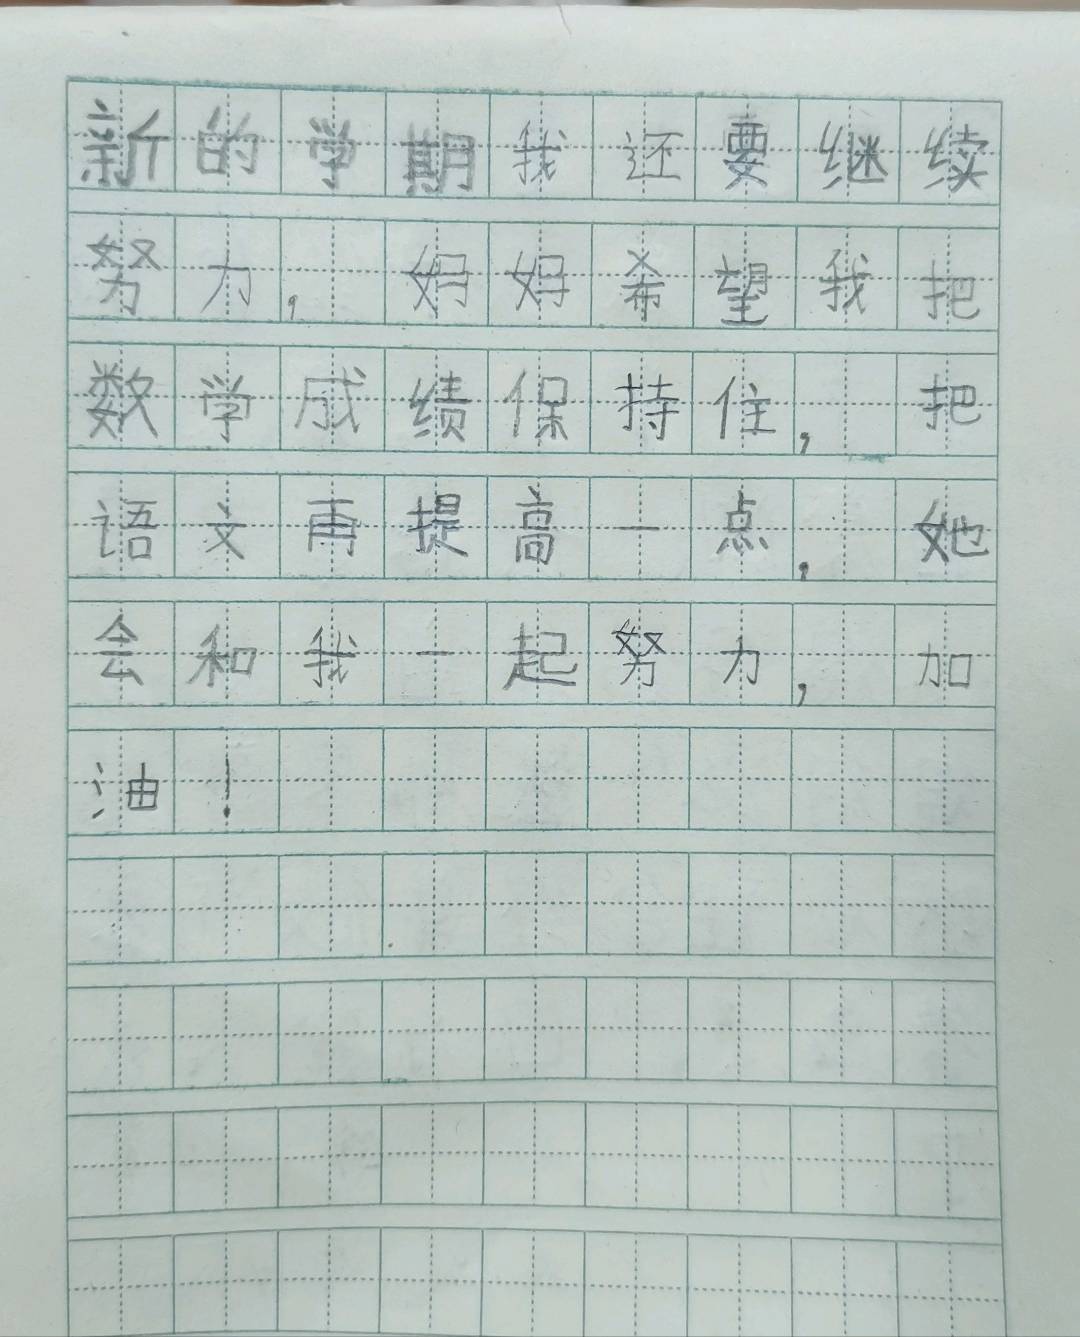 新的学期我还要继续
努力，妈妈希望我把
数学成绩保持住，把
语文再提高一点，她
会和我一起努力，加
油！